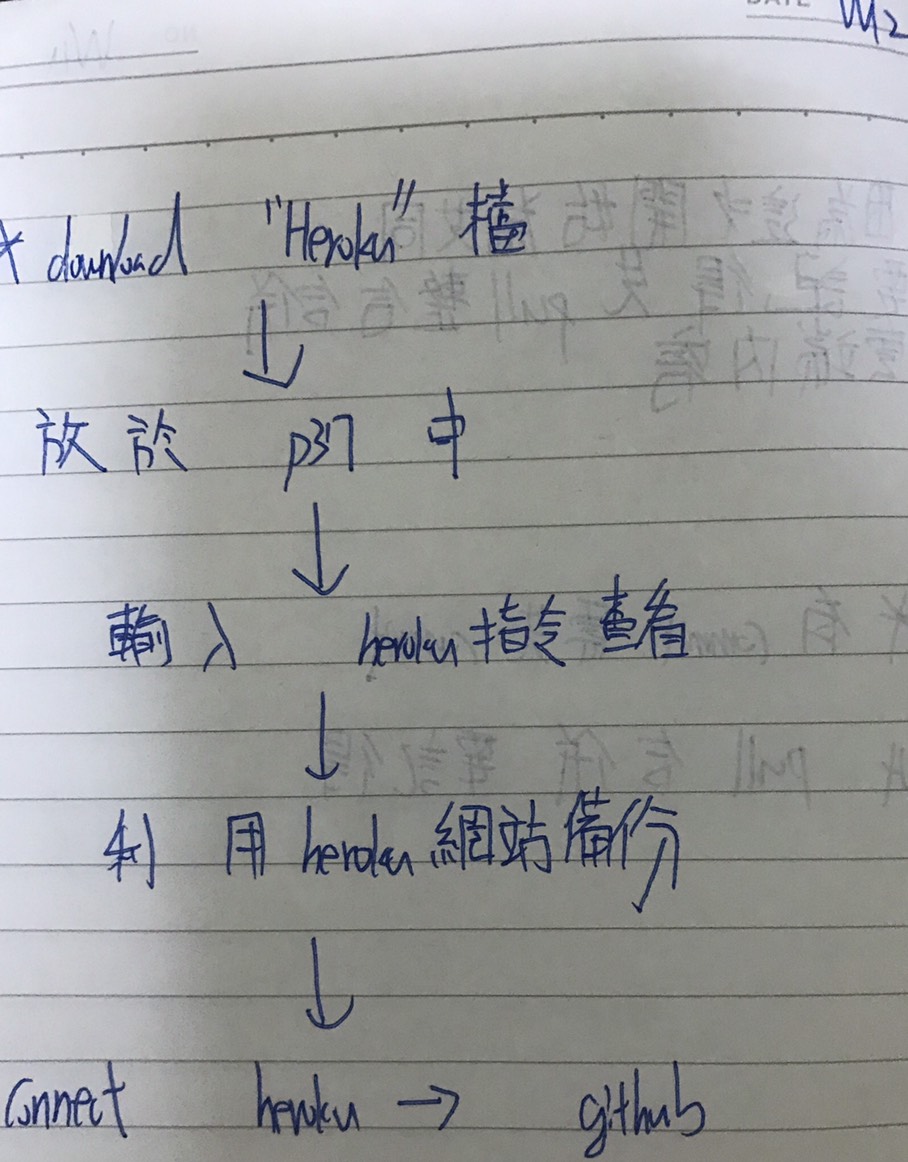 DATE W12
* download "Heroku" 檔
↓
放於 p37 中
↓
輸入 heroku 指令查看
↓
利用 heroku 網站備份
↓
Connect heroku → github